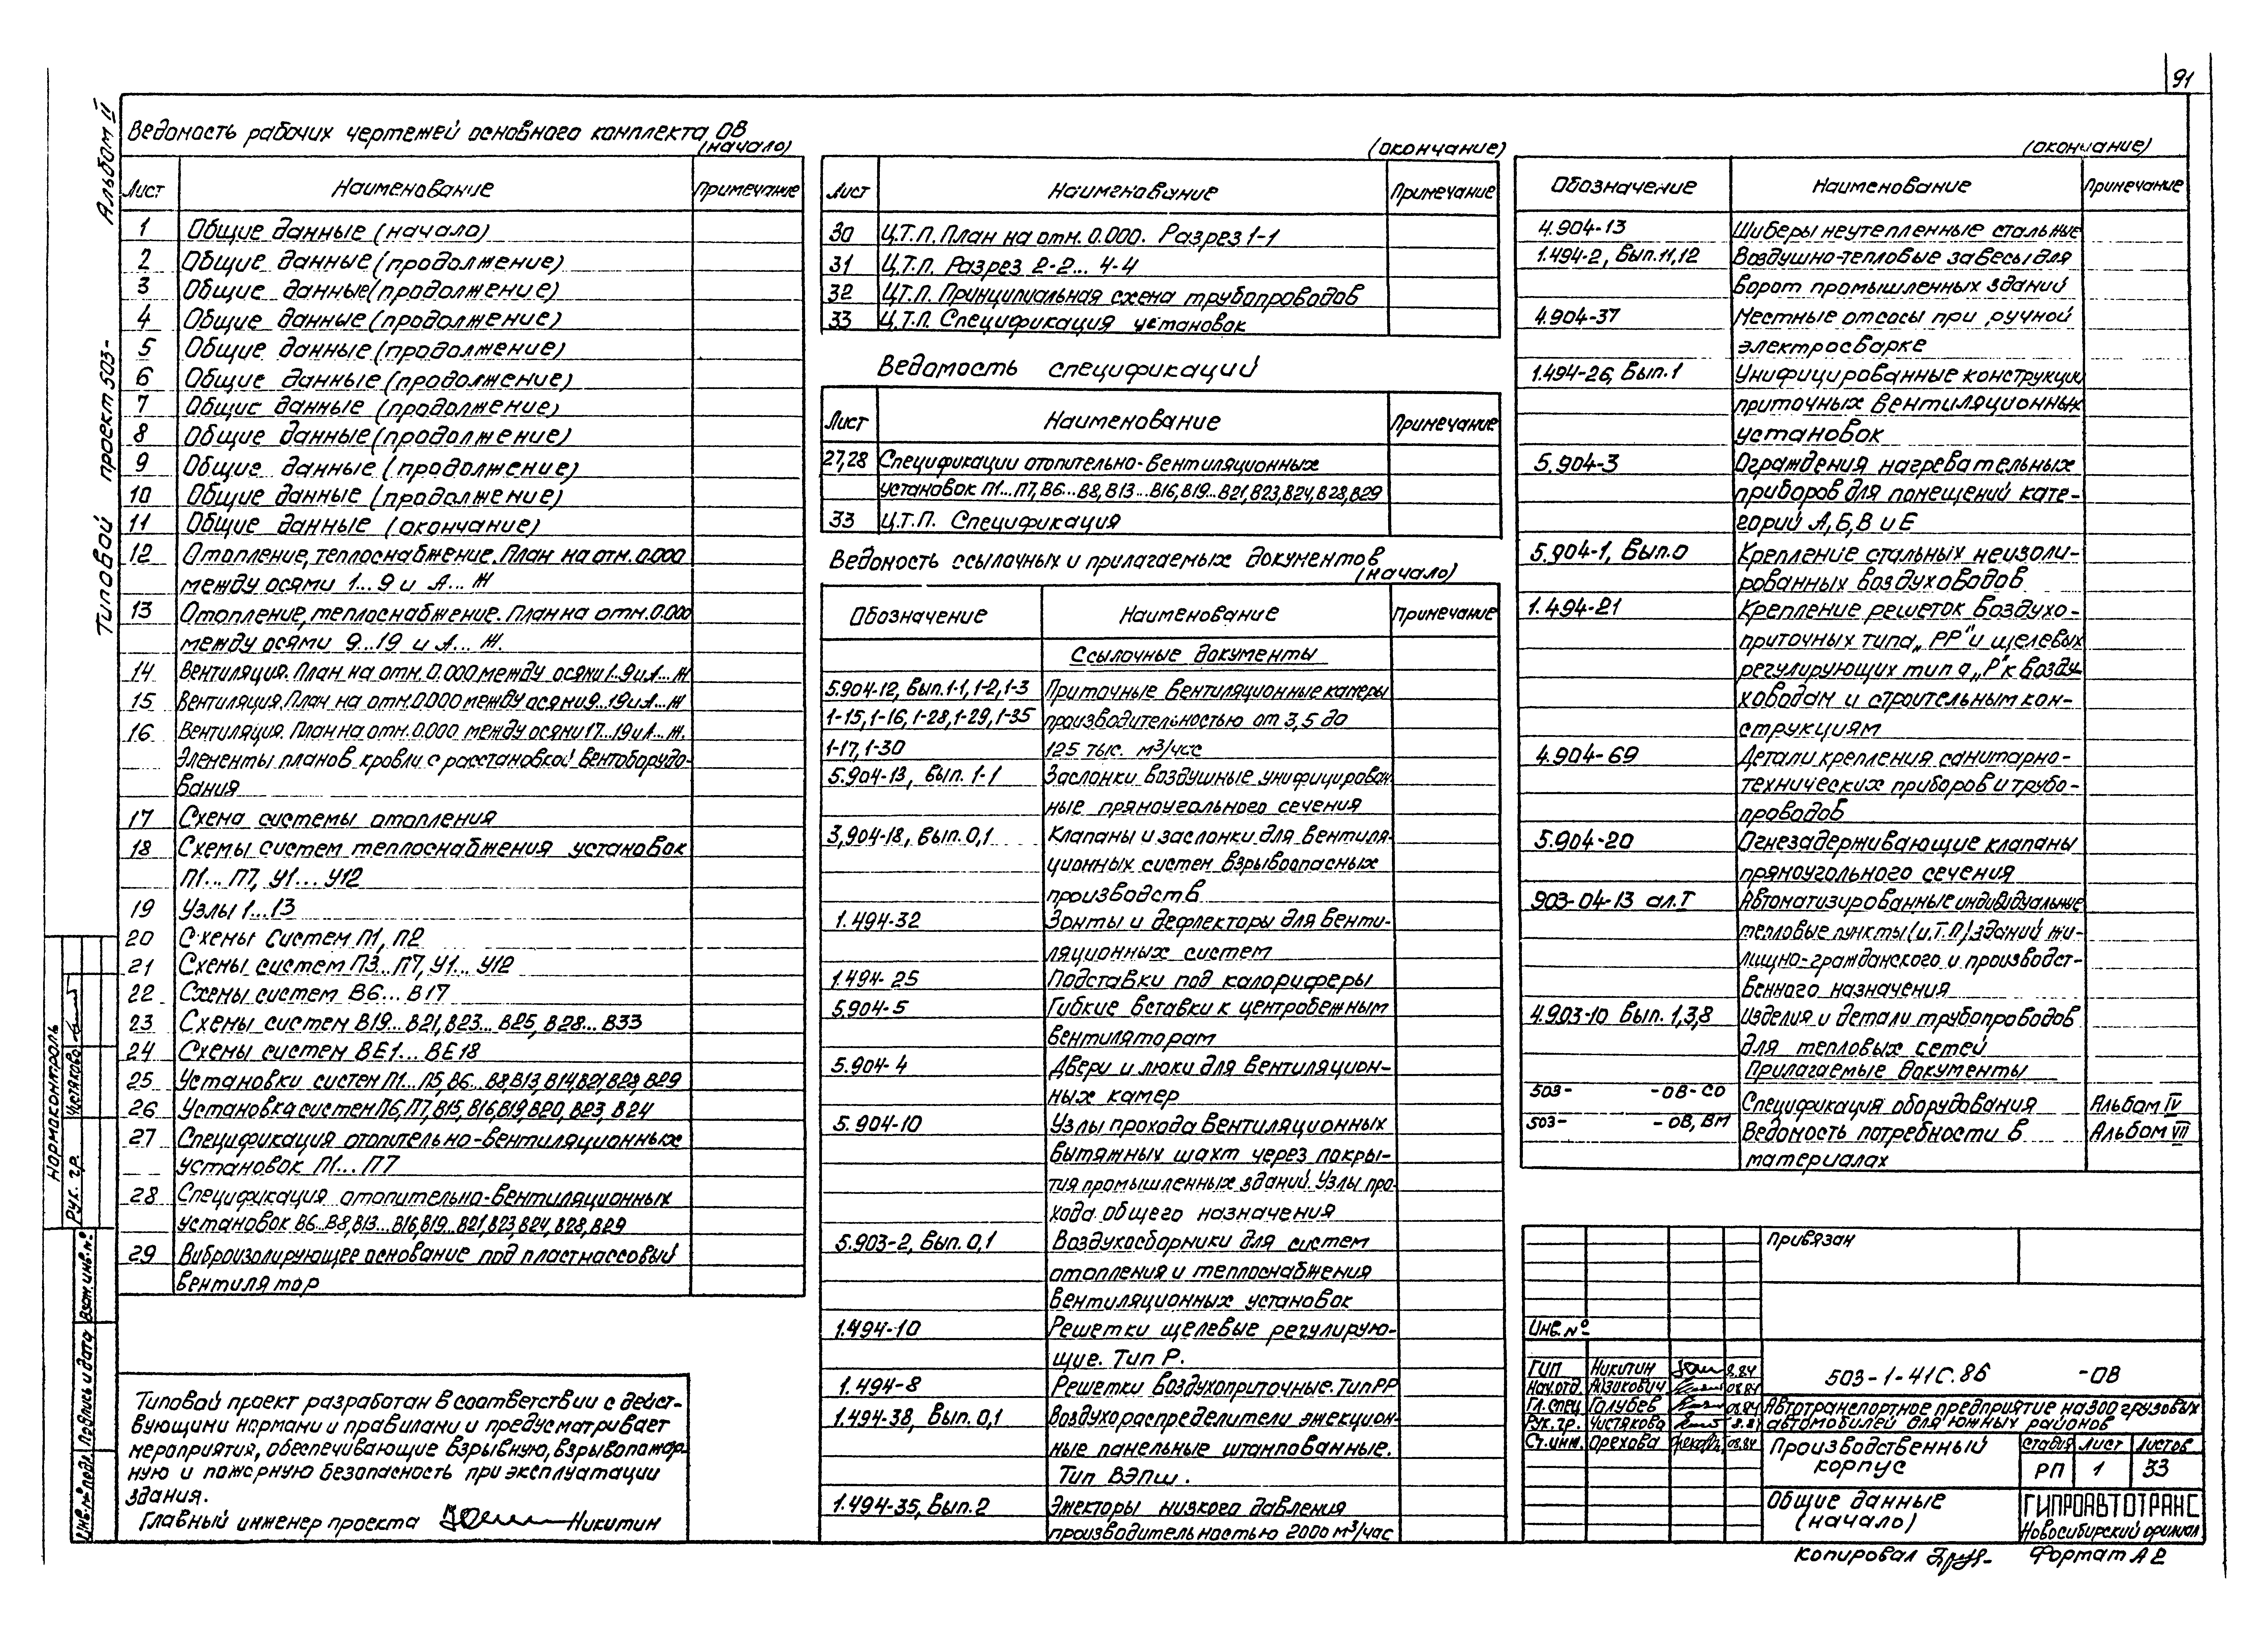 91
Альбом II
Типовой проект 503-
Ведомость рабочих чертежей основного комплекта ОВ
(начало)
Лист Наименование Примечание
1 Общие данные (начало)
2 Общие данные (продолжение)
3 Общие данные (продолжение)
4 Общие данные (продолжение)
5 Общие данные (продолжение)
6 Общие данные (продолжение)
7 Общие данные (продолжение)
8 Общие данные (продолжение)
9 Общие данные (продолжение)
10 Общие данные (продолжение)
11 Общие данные (окончание)
12 Отопление, теплоснабжение. План на отм. 0.000
между осями 1...9 и А...Ж
13 Отопление, теплоснабжение. План на отм. 0.000
между осями 9...19 и А...Ж.
14 Вентиляция. План на отм. 0.000 между осями 1..9 и А...Ж
15 Вентиляция. План на отм. 0.000 между осями 9..19 и А...Ж
16 Вентиляция. План на отм. 0.000 между осями 17...19 и А...Ж.
Элементы планов кровли с расстановкой вентоборудо-
вания
17 Схема системы отопления
18 Схемы систем теплоснабжения установок
П1...П7, У1...У12
19 Узлы 1...13
20 Схемы систем П1, П2
21 Схемы систем П3...П7, У1...У12
22 Схемы систем В6...В17
23 Схемы систем В19...В21, В23...В25, В28...В33
24 Схемы систем ВЕ1...ВЕ18
25 Установки систем П1...П5, В6...В8, В13, В14, В21, В28, В29
26 Установка систем П6, П7, В15, В16, В19, В20, В23, В24
27 Спецификация отопительно-вентиляционных
установок П1...П7
28 Спецификация отопительно-вентиляционных
установок В6...В8, В13...В16, В19...В21, В23, В24, В28, В29
29 Виброизолирующее основание под пластмассовый
вентилятор
Типовой проект разработан в соответствии с дейст-
вующими нормами и правилами и предусматривает
мероприятия, обеспечивающие взрывную, взрывопожар-
ную и пожарную безопасность при эксплуатации
здания.
Главный инженер проекта Никитин
(окончание)
Лист Наименование Примечание
30 Ц.Т.П. План на отм. 0.000. Разрез 1-1
31 Ц.Т.П. Разрез 2-2... 4-4
32 Ц.Т.П. Принципиальная схема трубопроводов
33 Ц.Т.П. Спецификация установок
Ведомость спецификаций
Лист Наименование Примечание
27,28 Спецификации отопительно-вентиляционных
установок П1...П7, В6...В8, В13...В16, В19...В21, В23, В24, В28, В29
33 Ц.Т.П. Спецификация
Ведомость ссылочных и прилагаемых документов
(начало)
Обозначение Наименование Примечание
Ссылочные документы
5.904-12, вып. 1-1, 1-2, 1-3 Приточные вентиляционные камеры
1-15, 1-16, 1-28, 1-29, 1-35 производительностью от 3,5 до
1-17, 1-30 125 тыс. м³/час
5.904-13, вып. 1-1 Заслонки воздушные унифицирован
ные прямоугольного сечения
3,904-18, вып. 0,1 Клапаны и заслонки для вентиля-
ционных систем взрывоопасных
производств
1.494-32 Зонты и дефлекторы для венти-
ляционных систем
1.494-25 Подставки под калориферы
5.904-5 Гибкие вставки к центробежным
вентиляторам
5.904-4 Двери и люки для вентиляцион-
ных камер
5.904-10 Узлы прохода вентиляционных
вытяжных шахт через покры-
тия промышленных зданий. Узлы про-
хода общего назначения
5.903-2, вып. 0,1 Воздухосборники для систем
отопления и теплоснабжения
вентиляционных установок
1.494-10 Решетки щелевые регулирую-
щие. Тип Р.
1.494-8 Решетки воздухоприточные. Тип РР
1.494-38, вып. 0,1 Воздухораспределители эжекцион-
ные панельные штампованные.
Тип ВЭПш.
1.494-35, вып. 2 Эжекторы низкого давления
производительностью 2000 м³/час
(окончание)
Обозначение Наименование Примечание
4.904-13 Шиберы неутепленные стальные
1.494-2, вып. 11,12 Воздушно-тепловые завесы для
ворот промышленных зданий
4.904-37 Местные отсосы при ручной
электросварке
1.494-26, вып. 1 Унифицированные конструкции
приточных вентиляционных
установок
5.904-3 Ограждения нагревательных
приборов для помещений кате-
горий А, Б, В и Е
5.904-1, вып. 0 Крепление стальных неизоли-
рованных воздуховодов
1.494-21 Крепление решеток воздухо-
приточных типа „РР" и щелевых
регулирующих типа „Р" к возду-
ховодам и строительным кон-
струкциям
4.904-69 Детали крепления санитарно-
технических приборов и трубо-
проводов
5.904-20 Огнезадерживающие клапаны
прямоугольного сечения
903-04-13 ал. I Автоматизированные индивидуальные
тепловые пункты (и.т.п.) зданий жи-
лищно-гражданского и производст-
венного назначения
4.903-10 вып. 1,3,8 Изделия и детали трубопроводов
для тепловых сетей
Прилагаемые документы
503- -ОВ-СО Спецификация оборудования Альбом IV
503- -ОВ, ВМ Ведомость потребности в Альбом VII
материалах
Привязан
Инв. №
ГИП Никитин 8.84
Нач.отд. Айзикович 08.84
Гл.спец Голубев 08.84
Рук.гр. Чистякова 8.84
Ст.инж. Орехова 08.84
503-1-41С.86 -ОВ
Автотранспортное предприятие на 300 грузовых
автомобилей для южных районов
Производственный
корпус
Стадия Лист Листов
РП 1 33
Общие данные
(начало)
ГИПРОАВТОТРАНС
Новосибирский филиал
Копировал Формат А2
Нормаконтроль
Рук. гр. Чистякова
Инв. № подл. Подпись и дата Взам. инв. №